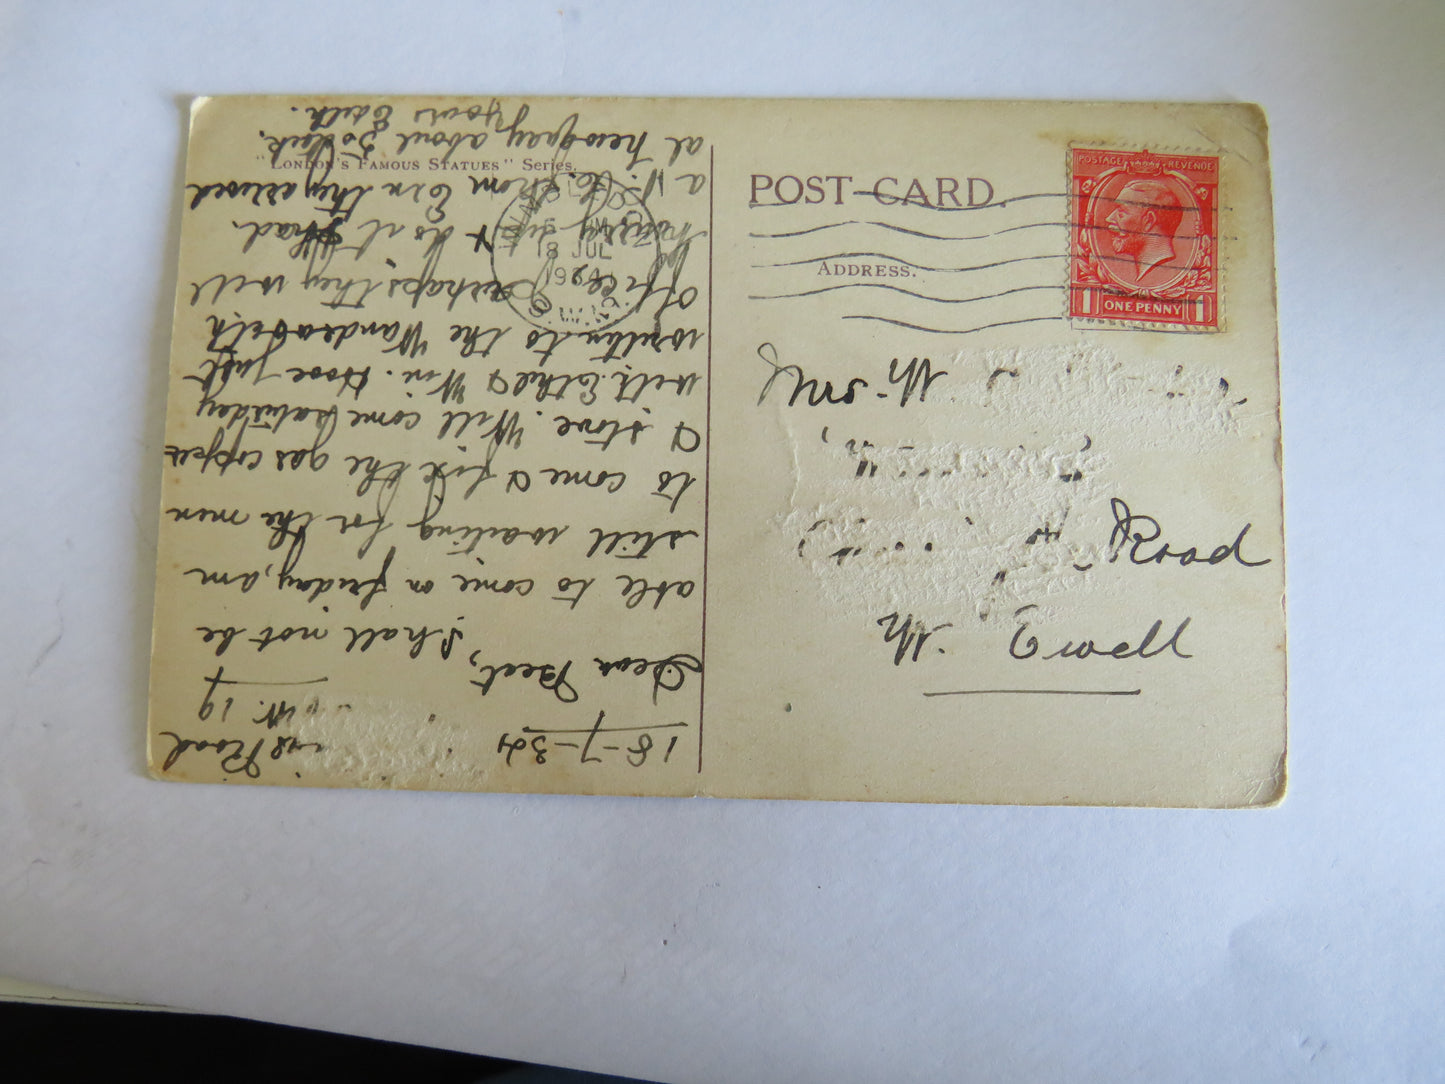 "LONDON'S FAMOUS STATUES" Series.
POST CARD.
ADDRESS.
POSTAGE REVENUE
1 ONE PENNY 1
18 JUL
S.W.
Mrs. W.
Road
W. Ewell
Road
W. 19
18-7-34
Dear Beet, Shall not be
able to come on friday, am
still waiting for the men
to come & fix the gas copper
& stove. Will come Saturday
with Ethel & Win. Have just
written to the Wandsworth
Office perhaps they will
hurry up
a from Ern they arrived
at Newquay about 5 o'clock.
Yours Edith.